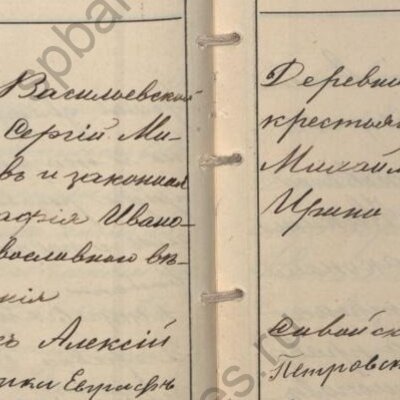 Василоевской
Сергій Ми-
въ и законная
афія Ивано-
вославнаго вѣ-
нія
Алексій
Евграфъ
Деревни
крестья
Михаил
Ирина
Петровск